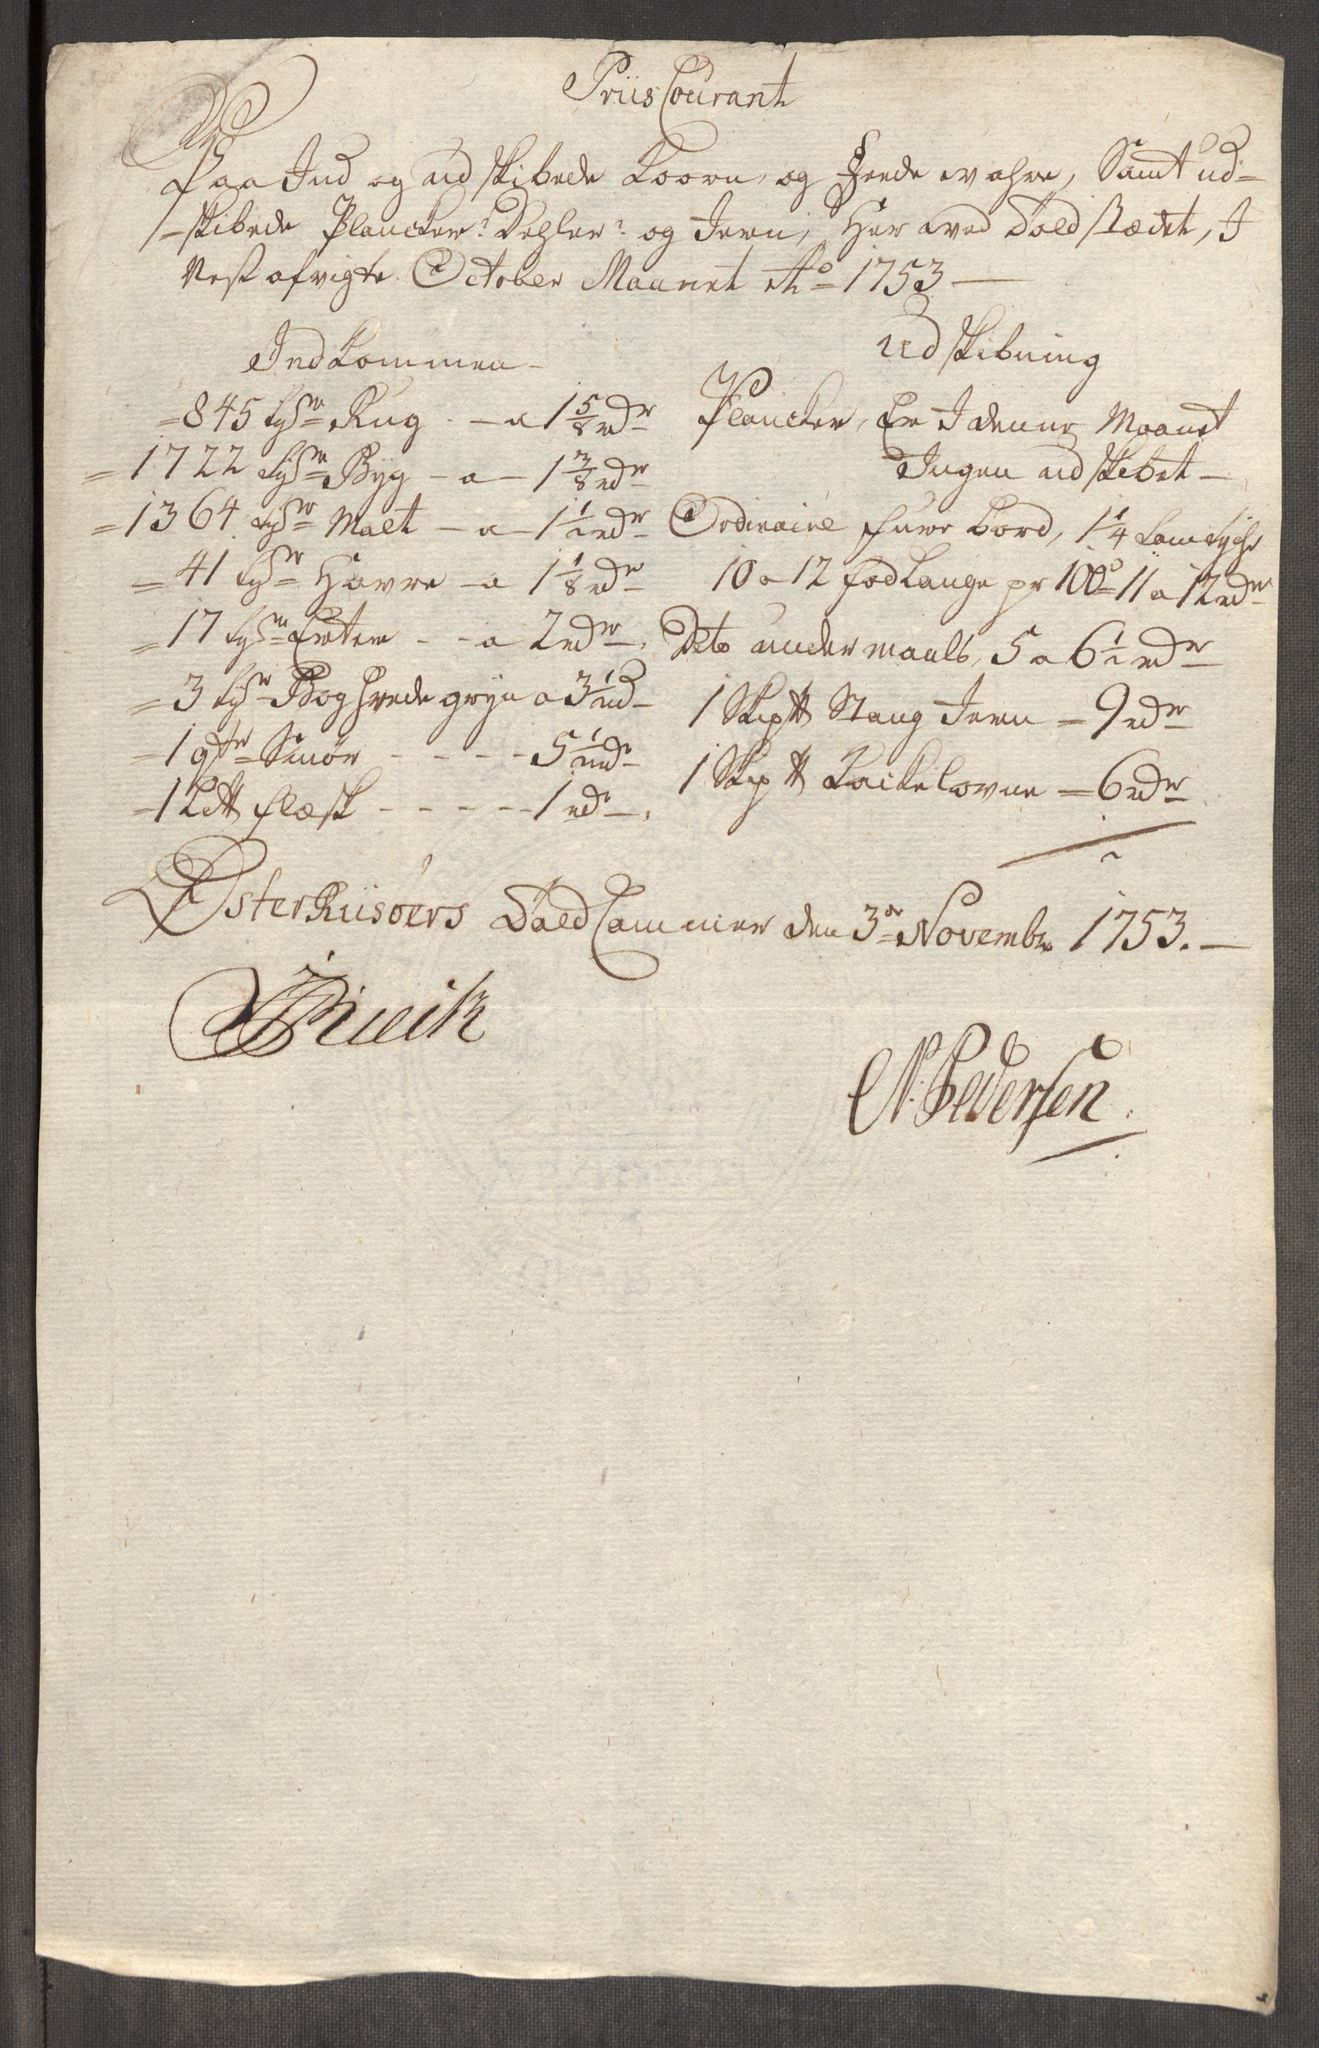 Priis Courant
Paa Ind og udskibede Koorn, og Feede wahre, Samt ud-
skibede Plancker: Dehler: og Jern, Her wed Toldstædet, I
Nest afvigte October Maanet Ao 1753 —
Indkommen -
= 845 tdr Rug - a 1 5/8 rdr
= 1722 tdr Byg - a - 1 3/8 rdr
= 1364 tdr Malt - a - 1 1/2 rdr
= 41 tdr Havre - a 1 1/8 rdr
= 17 tdr Erter - - a 2 rdr
= 3 tdr Boghvede gryn a 3 1/2 rd
= 1 qtr Smør - - - - 5 1/2 rdr
= 1 L℔ flæsk - - - - - 1 rdr
Udskibning
Plancker, Er I denne Maanet
Ingen udskibet —
Ordinaire Furre Bord, 1 1/4 tom tyche
10 a 12 fod Lange pr 100de 11 a 12 rdr
Dito under maals, 5 a 6 1/2 rdr
1 Skip℔ Stang Jern = 9 rdr
1 Skip℔ Kackelovne = 6 rdr
ØsterRiisøers Told Cammer den 3de Novembr 1753. —
N. Pedersen